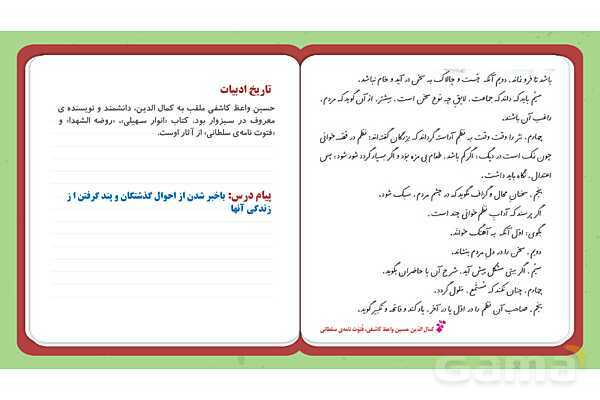 باشد تا فرو نماند. دویم آنکه چُست و چالاک به سخن در آید و خام نباشد.
سیُم باید که داند که جماعت، لایق چه نوع سخن است، بیشتر، از آن گوید که مردم،
راغب آن باشند.
چهارم، نثر را وقت وقت به نظم آراسته گرداند که بزرگان گفته‌اند: نظم در قصّه خوانی
چون نمک است در دیگ، اگر کم باشد، طعام بی مزه بُوَد و اگر بسیار گردد شور شود؛ پس
اعتدال، نگاه باید داشت.
پنجم، سخنان محال و گزاف نگوید که در چشم مردم، سبک شود.
اگر پرسند که آداب نظم خوانی چند است،
بگوی: اوّل آنکه به آهنگ خواند.
دویم، سخن را در دل مردم بنشاند.
سیُم، اگر بیتی مشکل پیش آید، شرح آن با حاضران بگوید.
چهارم، چنان نکند که مستمع، ملول گردد.
پنجم، صاحب آن نظم را در اوّل یا در آخر، یاد کند و فاتحه و تکبیر گوید.
کمال الدین حسین واعظ کاشفی، فتوت نامه‌ی سلطانی
تاریخ ادبیات
حسین واعظ کاشفی ملقب به کمال الدین، دانشمند و نویسنده ی
معروف در سبزوار بود. کتاب «انوار سهیلی»، «روضه الشهدا» و
«فتوت نامه‌ی سلطانی» از آثار اوست.
پیام درس: باخبر شدن از احوال گذشتگان و پند گرفتن ا ز
زندگی آنها
Gama